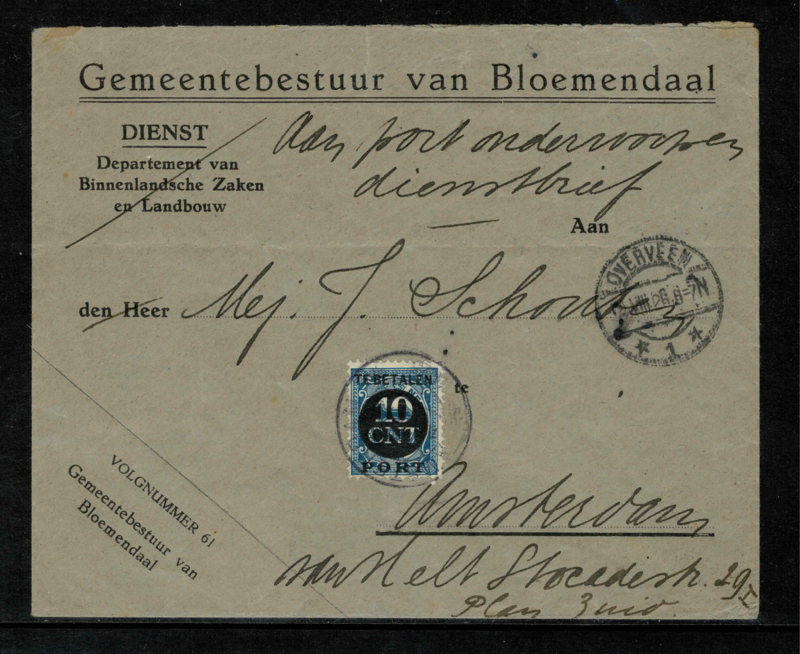 Gemeentebestuur van Bloemendaal
DIENST
Departement van
Binnenlandsche Zaken
en Landbouw
Aan port onderworpen
dienstbrief
Aan
OVERVEEN
VIII.26.
1
den Heer Mej. J.
TE BETALEN
10
CNT
PORT
te
Amsterdam
van Helt Stocadestr. 29 I
Plan Zuid.
VOLGNUMMER 61
Gemeentebestuur van
Bloemendaal